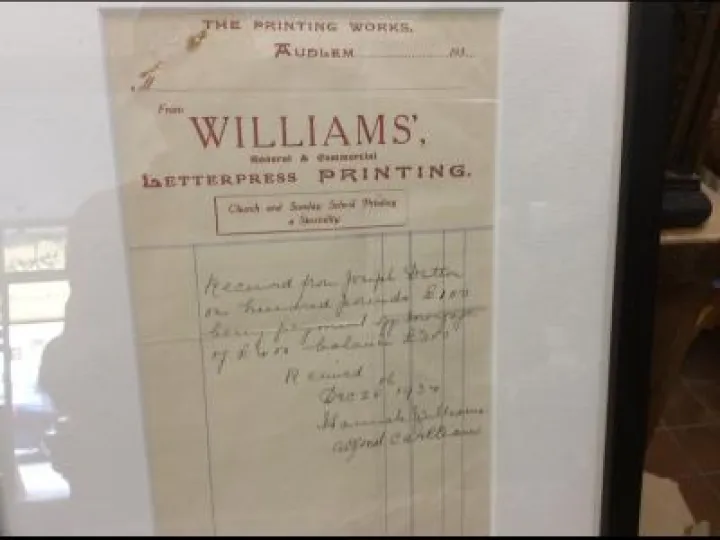 THE PRINTING WORKS,
AUDLEM 193
To
From
WILLIAMS',
General & Commercial
LETTERPRESS PRINTING.
Church and Sunday School Printing
a Speciality
Received from Joseph
on hundred pounds £100
being payment of mortgage
of £400 balance £300
Received
Dec 26th 1934
Hannah Williams